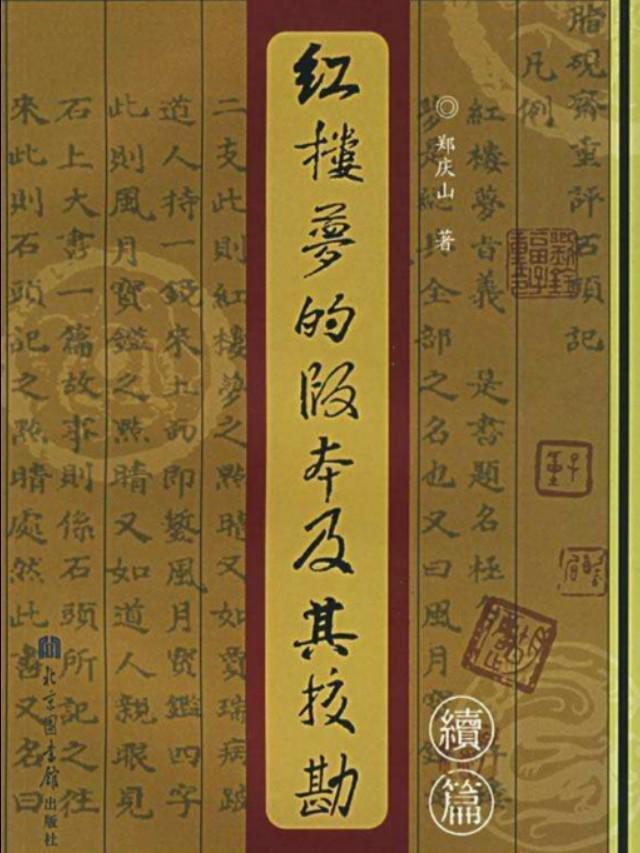 红楼夢的版本及其校勘
續篇
◎ 郑庆山 著
北京图书馆出版社
脂硯齋重評石頭記
凡例
紅樓夢旨義 是書題名極
夢是總其全部之名也又曰風月寶
二支此則紅樓夢之點睛又如賈瑞病跛
道人持一鏡來上面即鏨風月寶鑑四字
此則風月寶鑑之點睛又如道人親眼見
石上大書一篇故事則係石頭所記之往
來此則石頭記之點睛處然此書又名曰
劉銓福子重印
子重